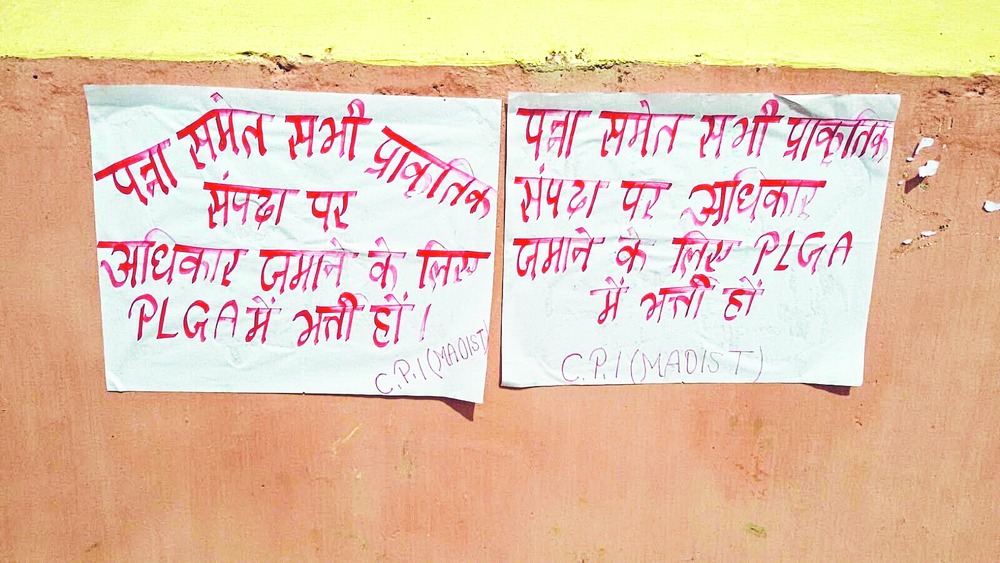 पन्ना समेत सभी प्राकृतिक
संपदा पर
अधिकार जमाने के लिए
PLGA में भर्ती हों!
C.P.I (MAOIST)
पन्ना समेत सभी प्राकृतिक
संपदा पर अधिकार
जमाने के लिए PLGA
में भर्ती हों
C.P.I (MAOIST)